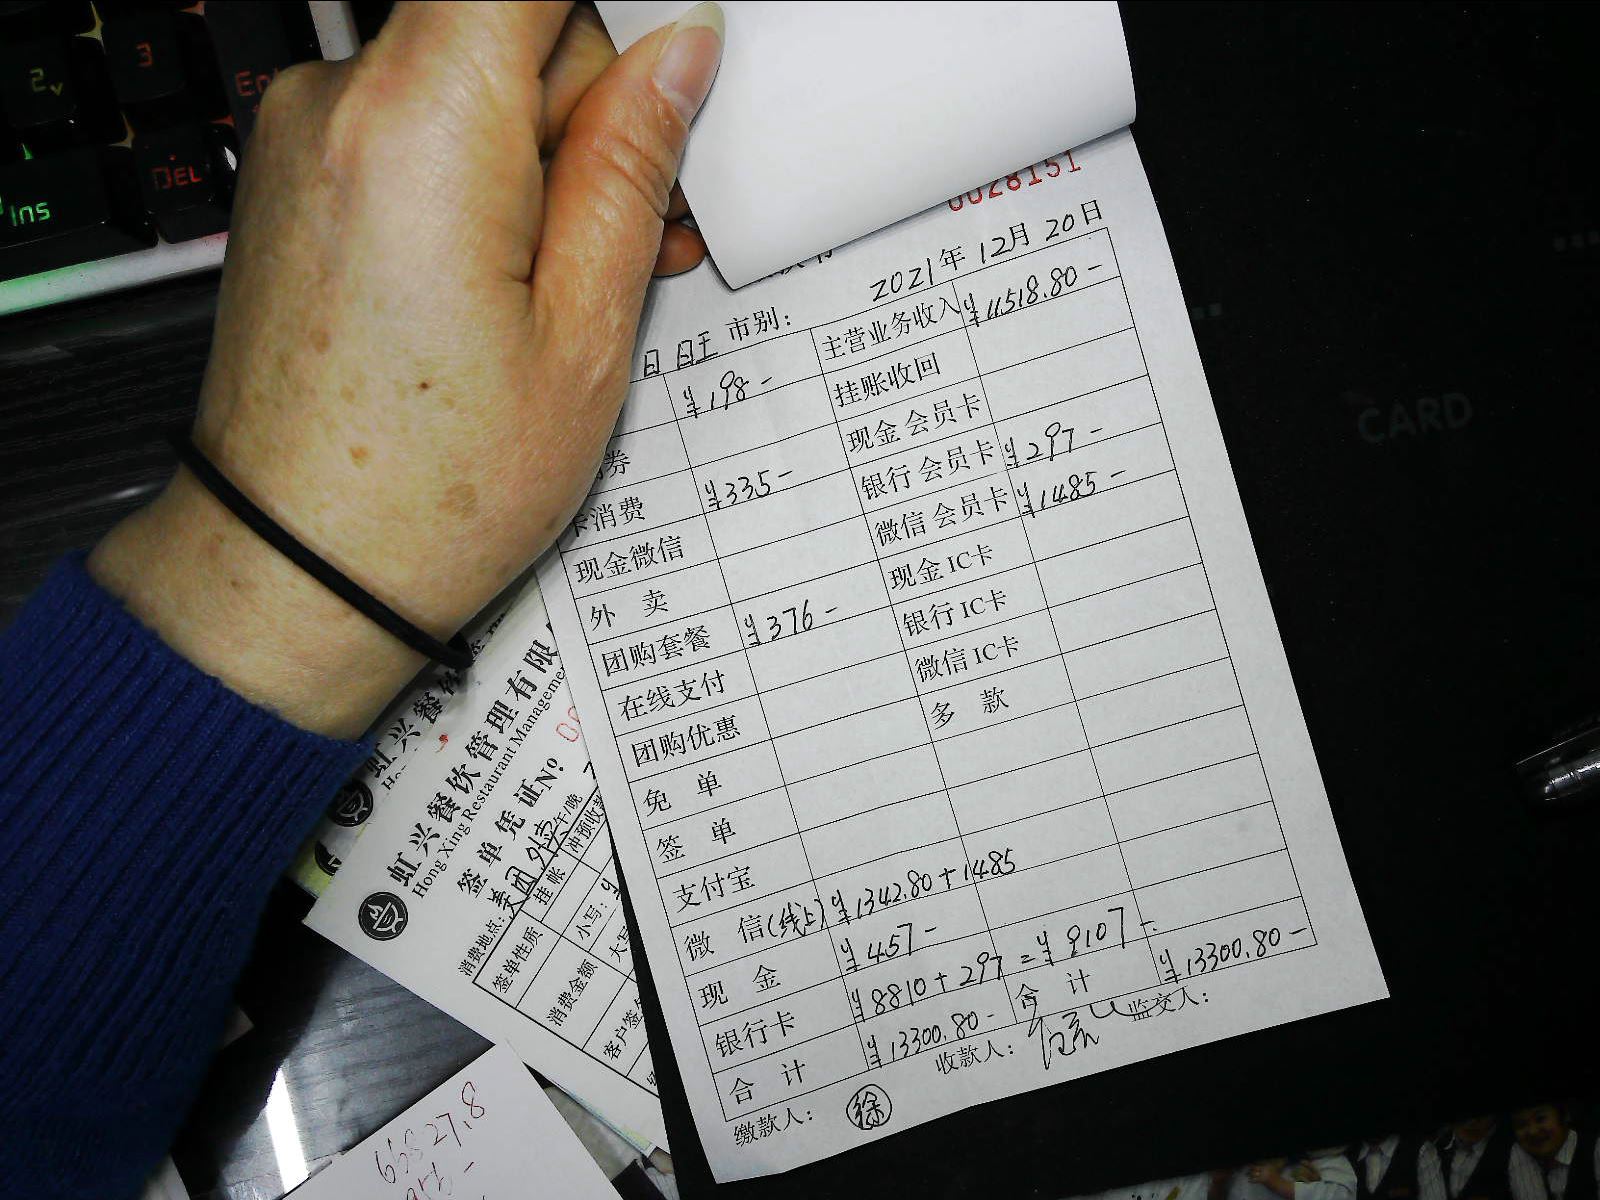 2
3
Ent
DEL
Ins
0028151
2021年 12月 20日
市别：
¥198- 主营业务收入 ¥11518.80-
挂账收回
券 现金会员卡
卡消费 ¥335- 银行会员卡 ¥297-
现金微信 微信会员卡 ¥1485-
外 卖 现金IC卡
团购套餐 ¥376- 银行IC卡
在线支付 微信IC卡
团购优惠 多 款
免 单
签 单
支付宝
微 信(线上) ¥1342.80+1485
现 金 ¥457-
银行卡 ¥8810+297=¥9107-
合 计 ¥13300.80- 合 计 ¥13300.80-
缴款人： 徐 收款人： 监交人：
CARD
虹兴餐饮管理有限
Hong Xing Restaurant Management
签单凭证 Nº
消费地点：美团外卖 午/晚
签单性质 挂账 冲预收款
消费金额 小写：¥
大写
客户签
虹兴餐饮
66527.8